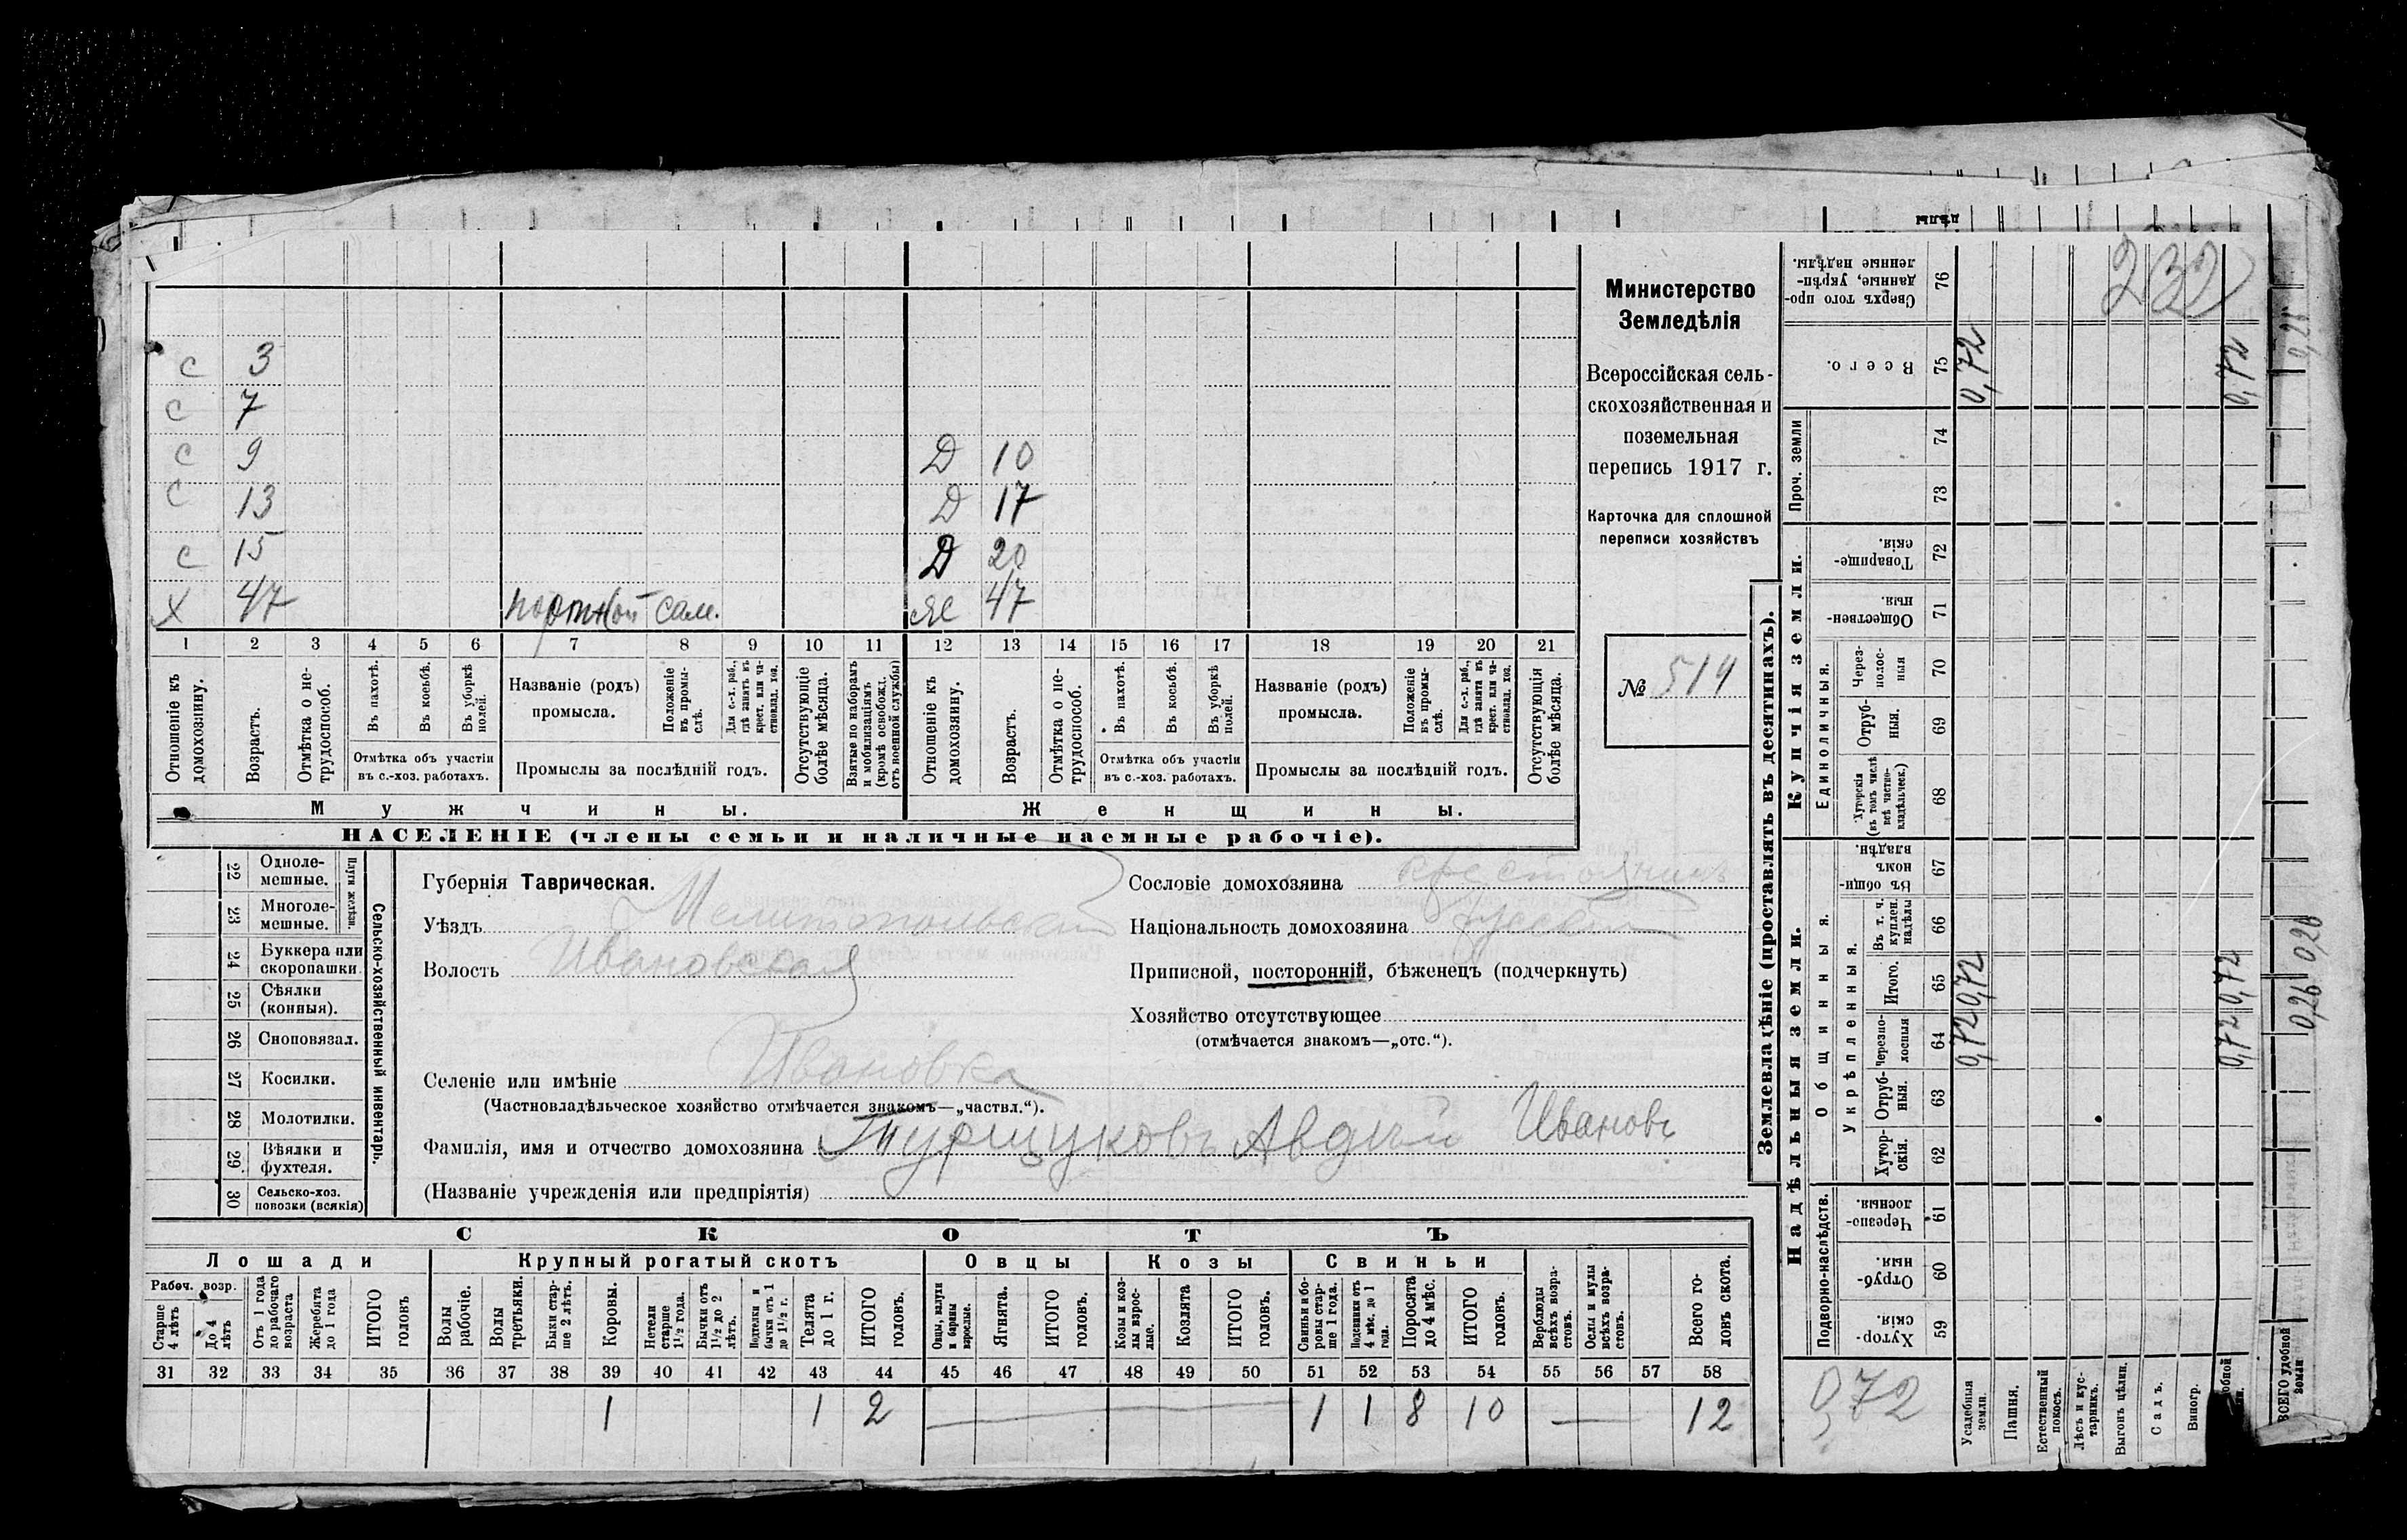 232
С 3
С 7
С 9 Д 10
С 13 Д 17
С 15 Д 20
Х 47 портной сам. Ж 47
1 2 3 4 5 6 7 8 9 10 11 12 13 14 15 16 17 18 19 20 21
Отношеніе къ домохозяину.
Возрастъ.
Отмѣтка о нетрудоспособ.
Въ пахотѣ.
Въ косьбѣ.
Въ уборкѣ полей.
Отмѣтка объ участіи въ с.-хоз. работахъ.
Названіе (родъ) промысла.
Положеніе въ промыслѣ.
Для с.-х. раб., гдѣ занятъ въ крест. или частновлад. хоз.
Промыслы за послѣдній годъ.
Отсутствующіе болѣе мѣсяца.
Взятые по наборамъ и мобилизаціямъ (кромѣ освобожд. отъ военной службы)
Отношеніе къ домохозяину.
Возрастъ.
Отмѣтка о нетрудоспособ.
Въ пахотѣ.
Въ косьбѣ.
Въ уборкѣ полей.
Отмѣтка объ участіи въ с.-хоз. работахъ.
Названіе (родъ) промысла.
Положеніе въ промыслѣ.
Для с.-х. раб., гдѣ занята въ крест. или частновлад. хоз.
Промыслы за послѣдній годъ.
Отсутствующія болѣе мѣсяца.
Мужчины. Женщины.
НАСЕЛЕНІЕ (члены семьи и наличные наемные рабочіе).
Министерство
Земледѣлія
Всероссійская сель-
скохозяйственная и
поземельная
перепись 1917 г.
Карточка для сплошной
переписи хозяйствъ
№ 514
22 Одноле-мешные.
23 Многоле-мешные.
Плуги желѣзн.
24 Буккера или скоропашки.
25 Сѣялки (конныя).
26 Сноповязал.
27 Косилки.
28 Молотилки.
29 Вѣялки и фухтеля.
30 Сельско-хоз. повозки (всякія)
Сельско-хозяйственный инвентарь.
Губернія Таврическая.
Уѣздъ Мелитопольскій
Волость Ивановская
Селеніе или имѣніе Ивановка
(Частновладѣльческое хозяйство отмѣчается знакомъ—„частвл.“).
Фамилія, имя и отчество домохозяина Турщуковъ Авдѣй Ивановъ
(Названіе учрежденія или предпріятія)
Сословіе домохозяина крестьянинъ
Національность домохозяина русскій
Приписной, посторонній, бѣженецъ (подчеркнуть)
Хозяйство отсутствующее
(отмѣчается знакомъ—„отс.“).
СКОТЪ
Лошади Крупный рогатый скотъ Овцы Козы Свиньи
Рабоч. возр.
Старше 4 лѣтъ
До 4 лѣтъ
Отъ 1 года до рабочаго возраста
Жеребята до 1 года
ИТОГО головъ
Волы рабочіе.
Волы третьяки.
Быки старше 2 лѣтъ.
Коровы.
Нетели старше 1½ года.
Бычки отъ 1½ до 2 лѣтъ.
Подтелки и бычки отъ 1 до 1½ г.
Телята до 1 г.
ИТОГО головъ.
Овцы, валухи и бараны взрослые.
Ягнята.
ИТОГО головъ.
Козы и козлы взрослые.
Козлята
ИТОГО головъ.
Свиньи и боровы старше 1 года.
Подсвинки отъ 4 мѣс. до 1 года.
Поросята до 4 мѣс.
ИТОГО головъ.
Верблюды всѣхъ возрастовъ.
Ослы и мулы всѣхъ возрастовъ.
Всего головъ скота.
31 32 33 34 35 36 37 38 39 40 41 42 43 44 45 46 47 48 49 50 51 52 53 54 55 56 57 58
1 1 2 1 1 8 10 12
Землевладѣніе (проставлять въ десятинахъ).
Надѣльныя земли. Купчія земли. Проч. земли
Подворно-наслѣдств.
Общинныя.
Укрѣпленныя.
Единоличныя.
59 Хуторскія.
60 Отрубныя.
61 Черезполосныя.
62 Хуторскія.
63 Отрубныя.
64 Черезполосныя
65 Итого.
66 Въ т. ч. куплен. надѣлы
67 Въ общиномъ владѣн.
68 Хуторскія (въ томъ числѣ всѣ частновладѣльческ.)
69 Отрубныя.
70 Черезполосныя
71 Общественныя.
72 Товарищескія.
73
74
75 Всего.
76 Сверхъ того проданные, укрѣпленные надѣлы.
0,72 0,72 0,72
0,72 0,72 0,72
0,72
Усадебныя земли.
Пашня.
Естественный покосъ.
Лѣсъ и кустарникъ.
Выгонъ цѣлин.
Садъ.
Виногр.
ВСЕГО удобной земли
0,26 0,26